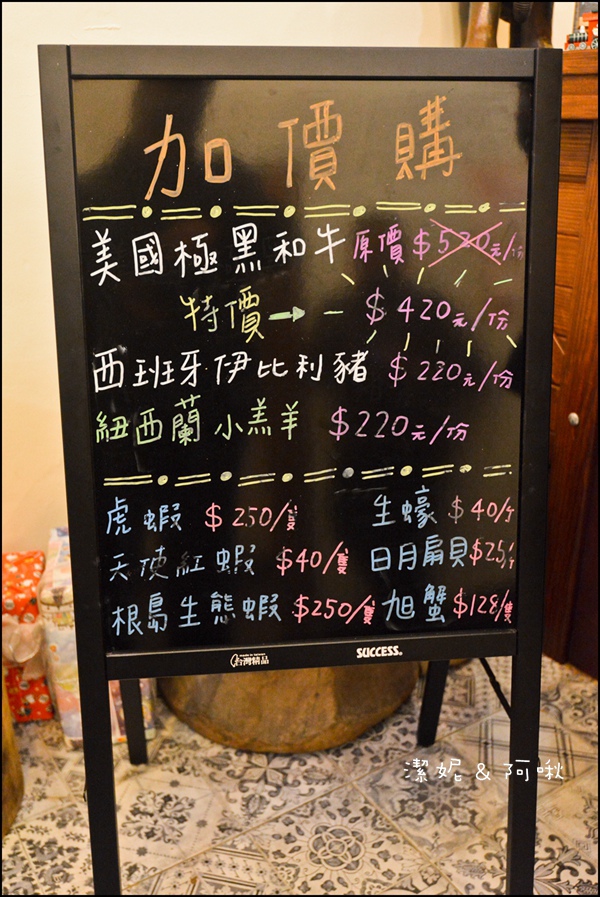 加價購
美國極黑和牛 原價 $520元/份
特價→ $420元/份
西班牙伊比利豬 $220元/份
紐西蘭小羔羊 $220元/份
虎蝦 $250/隻 生蠔 $40/
天使紅蝦 $40/隻 日月扇貝 $25/
根島生態蝦 $250/隻 旭蟹 $128/隻
台灣精品 SUCCESS.
潔妮&阿啾